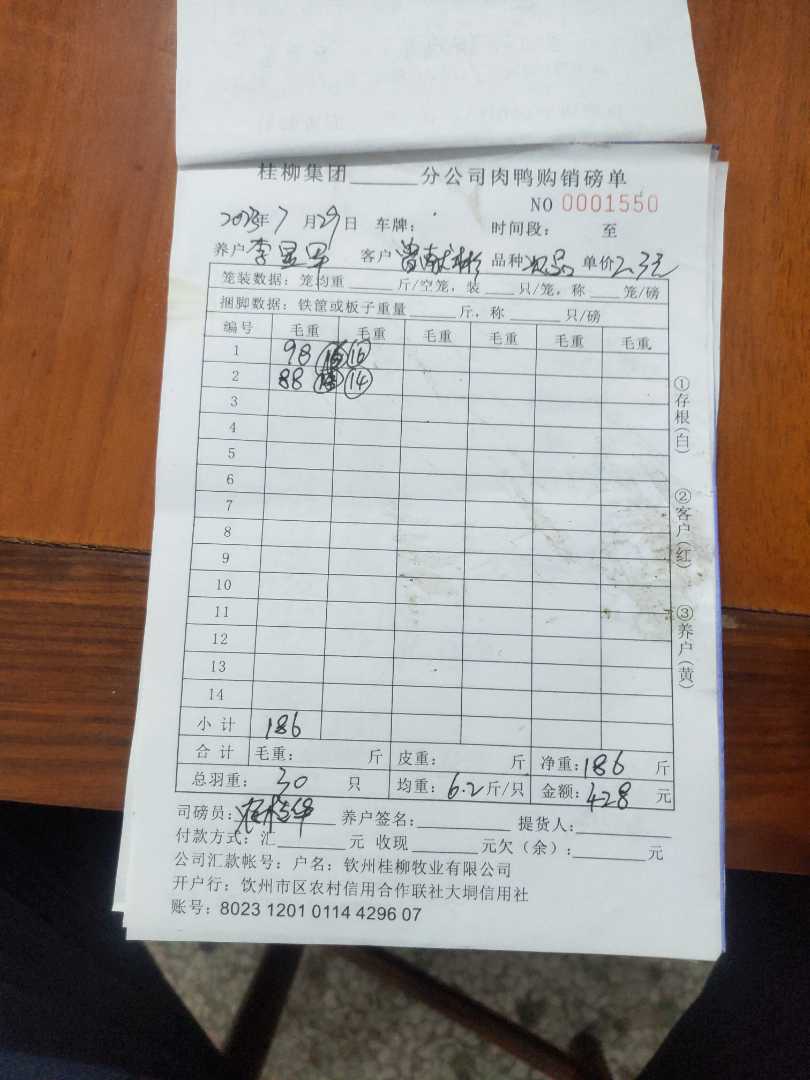 桂柳集团______分公司肉鸭购销磅单
NO 0001550
2023年7月29日 车牌： 时间段： 至
养户 李 客户 曾 品种 次品 单价 2.3元
笼装数据：笼均重____斤/空笼，装____只/笼，称____笼/磅
捆脚数据：铁筐或板子重量____斤，称____只/磅
编号 毛重 毛重 毛重 毛重 毛重 毛重
1 98 16
2 88 14
3
4
5
6
7
8
9
10
11
12
13
14
小计 186
合计 毛重： 斤 皮重： 斤 净重：186 斤
总羽重： 30 只 均重：6.2斤/只 金额：428 元
司磅员： 养户签名：________ 提货人：________
付款方式：汇______元 收现______元欠（余）：______元
公司汇款帐号：户名：钦州桂柳牧业有限公司
开户行：钦州市区农村信用合作联社大垌信用社
账号：8023 1201 0114 4296 07
①存根（白）
②客户（红）
③养户（黄）